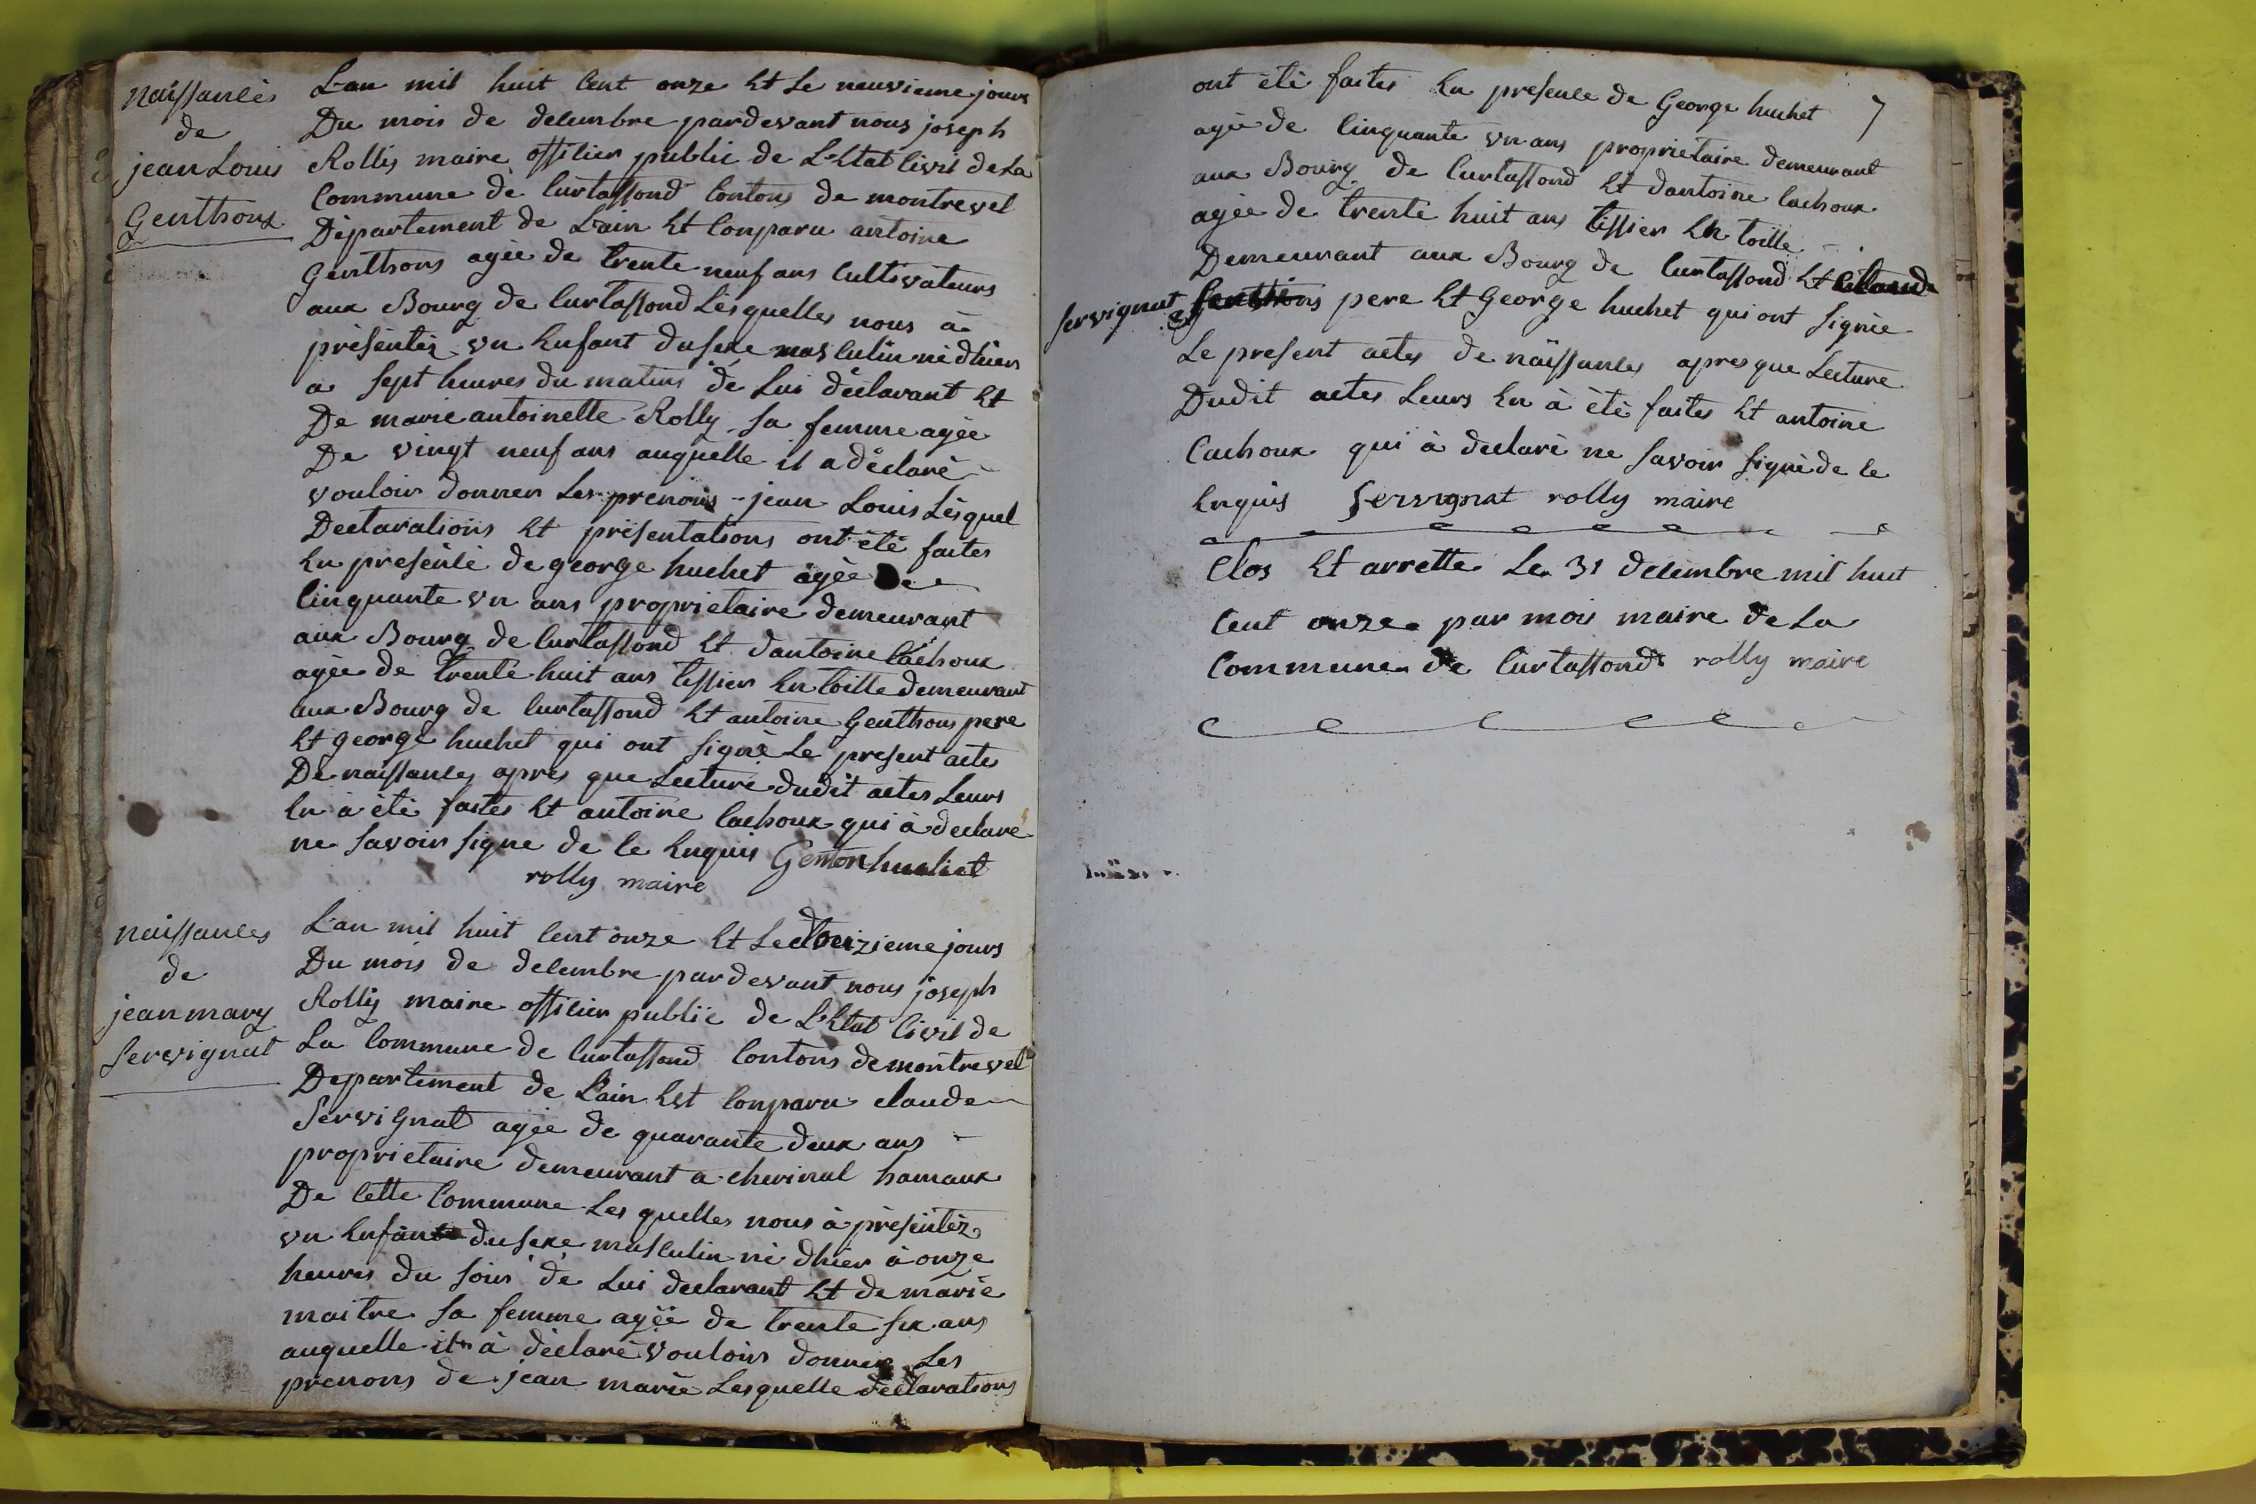 naissances
de
jean Louis
Genthons
L'an mil huit cent onze et le neuvieme jours
Du mois de decembre pardevant nous joseph
Rolly maire officier public de L'Etat Civil de La
Commune de Curtassond Contons de montrevel
Département de L'ain Et Conparu antoine
Genthons agée de trente neuf ans Cultivateurs
aux Bourg de Curtassond Lesquelles nous à
présentéz un Enfant du sexe masculin né dhier
a sept heures du matins de Lui déclarant Et
De marie antoinette Rolly sa femme agée
De vingt neuf ans auquelle il a déclaré
vouloir donner Les prenoms jean Louis Lesquel
Declarations Et présentations ont été faites
En presénce de george huchet agée de
Cinquante un ans proprietaire demeurant
aux Bourg de Curtassond Et dantoine Cachoux
agée de trente huit ans tissier En toille demeurant
aux Bourg de Curtassond Et antoine Genthons pere
Et george huchet qui ont signé Le present actes
De naissances apres que Lecture dudit actes Leurs
En à été faites Et antoine Cachoux qui à declaré
ne savoir signe de ce Enquis Genton huchet
rolly maire
naissances
de
jean mary
Servignat
L'an mil huit cent onze Et Le douzieme jours
Du mois de decembre pardevant nous joseph
Rolly maire officier public de L'Etat Civil de
La Commune de Curtassond Contons de montrevel
Departement de L'ain Est Conparu claude
Servignat agée de quarante deux ans
proprietaire demeurant a cherinal hamaux
De Cette Commune Les quelles nous à présentéz
un Enfant du sexe masculin né dhier à onze
heures du soir de Lui declarant Et de marie
maitre sa femme agée de trente six ans
auquelle il à déclaré vouloir donner Les
prenoms de jean marie Lesquelle déclarations
7
ont été faites En presence de George huchet
agée de Cinquante un ans proprietaire demeurant
aux Bourg de Curtassond Et dantoine Cachoux
agée de trente huit ans tissier En toille
Demeurant aux Bourg de Curtassond Et Claude
servignat Genthons pere Et George huchet qui ont signée
Le present actes de naissances apres que Lecture
Dudit actes Leurs En à été faites Et antoine
Cachoux qui à declaré ne savoir signé de ce
Enquis Servignat rolly maire
Clos Et arretté Le 31 decembre mil huit
Cent onze par mois maire de La
Commune de Curtassond rolly maire